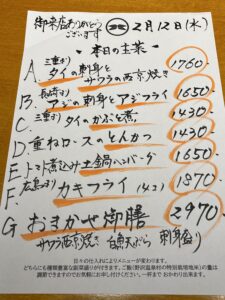 御来店ありがとう
ございます
2月12日(水)
・本日の主菜・
A. 三重より タイの刺身と
サワラの西京焼き 1760-
B. 長崎より アジの刺身とアジフライ 1650-
C. 三重より タイのかぶと煮 1430-
D. 重ねロースのとんかつ 1430-
E. トマト煮込み土鍋ハンバーグ 1650-
F. 広島より カキフライ(4コ) 1870
G おまかせ御膳 2970-
サワラ西京焼き 白魚天ぷら 刺身盛り
日々の仕入れによりメニューが変わります。
どちらにも種類豊富な副菜盛りが付きます。ご飯(野沢温泉村の特別栽培地米)の量は
調節できますのでお気軽にお申し付けください。一杯までおかわり出来ます。